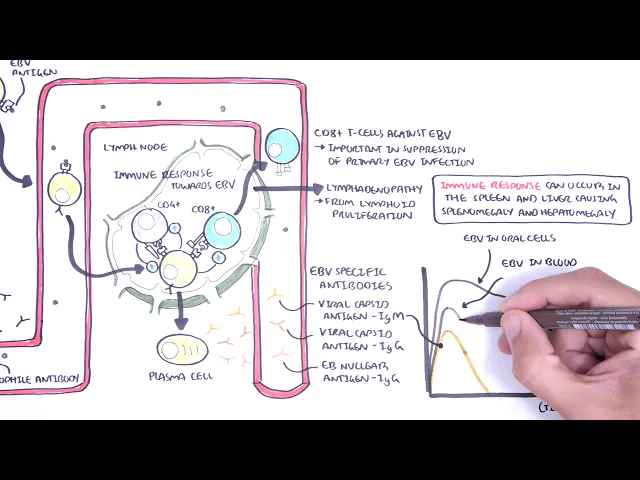 EBV
ANTIGEN
LYMPH NODE
IMMUNE RESPONSE
TOWARDS EBV
CD4+
CD8+
CD8+ T-CELLS AGAINST EBV
→ IMPORTANT IN SUPPRESSION
OF PRIMARY EBV INFECTION
LYMPHADENOPATHY
→ FROM LYMPHOID
PROLIFERATION
IMMUNE RESPONSE CAN OCCUR IN
THE SPLEEN AND LIVER CAUSING
SPLENOMEGALY AND HEPATOMEGALY
EBV IN ORAL CELLS
EBV IN BLOOD
EBV SPECIFIC
ANTIBODIES
VIRAL CAPSID
ANTIGEN - IgM
VIRAL CAPSID
ANTIGEN - IgG
EB NUCLEAR
ANTIGEN - IgG
PLASMA CELL
OPHILE ANTIBODY